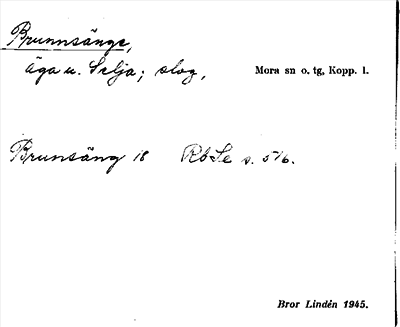 Brunnsänge,
äga u. Selja; slog, Mora sn o. tg, Kopp. l.
Brunsäng 18 RöSe s. 576.
Bror Lindén 1945.